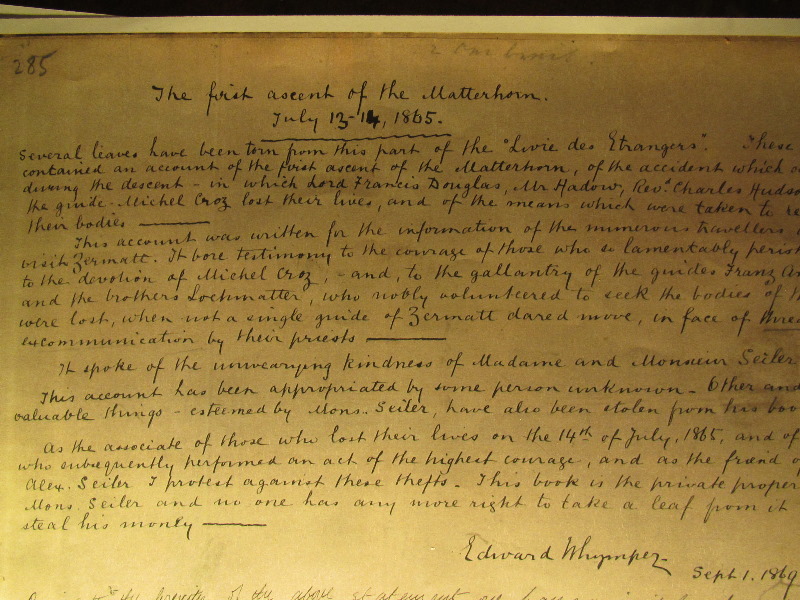 285
The first ascent of the Matterhorn.
July 13-14, 1865.
Several leaves have been torn from this part of the "Livre des Etrangers". These
contained an account of the first ascent of the Matterhorn, of the accident which
during the descent - in which Lord Francis Douglas, Mr Hadow, Revd. Charles Hudso
the guide Michel Croz lost their lives, and of the means which were taken to re
their bodies ———
This account was written for the information of the numerous travellers
visit Zermatt. It bore testimony to the courage of those who so lamentably perish
to the devotion of Michel Croz, - and, to the gallantry of the guides Franz An
and the brothers Lochmatter, who nobly volunteered to seek the bodies of
were lost, when not a single guide of Zermatt dared move, in face of threa
excommunication by their priests ———
It spoke of the unwearying kindness of Madame and Monsieur Seiler
This account has been appropriated by some person unknown - Other and
valuable things - esteemed by Mons. Seiler, have also been stolen from his boo
As the associate of those who lost their lives on the 14th of July, 1865, and of
who subsequently performed an act of the highest courage, and as the friend o
Alex. Seiler I protest against these thefts - This book is the private proper
Mons. Seiler and no one has any more right to take a leaf from it
steal his money ———
Edward Whymper
Sept 1. 1869
the above statement